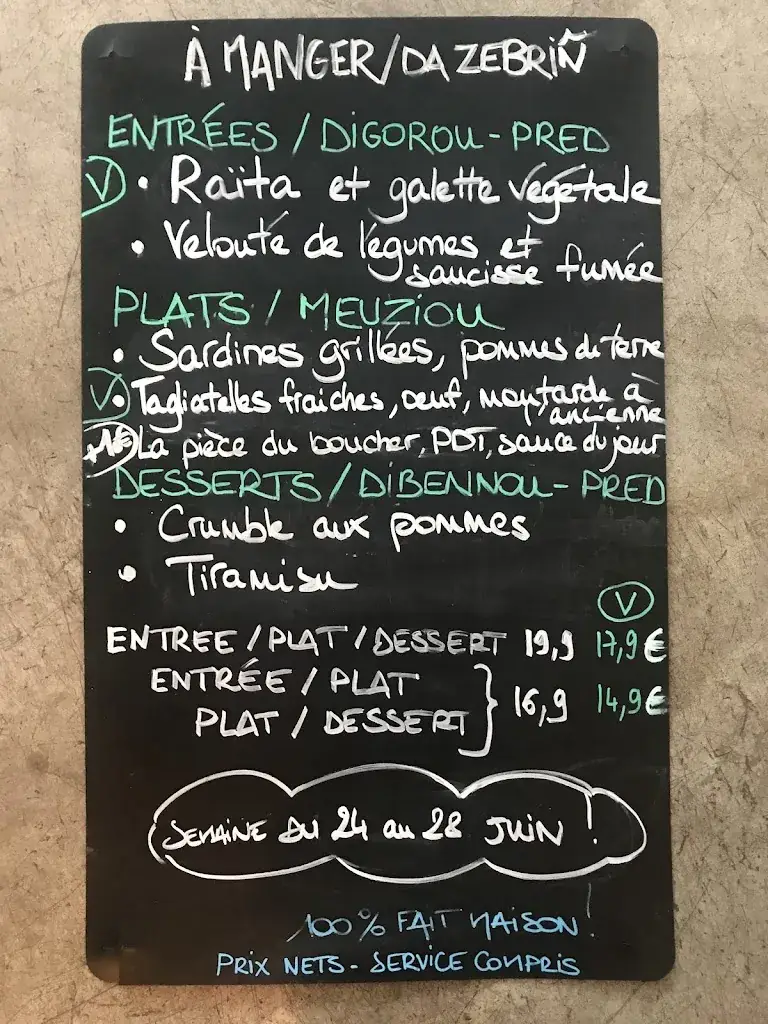 À MANGER/DA ZEBRIÑ
ENTRÉES / DIGOROU-PRED
V • Raïta et galette végétale
• Velouté de légumes et
saucisse fumée
PLATS / MEUZIOU
• Sardines grillées, pommes de terre
V • Tagliatelles fraiches, oeuf, moutarde à
l'ancienne
+1€ La pièce du boucher, PDT, sauce du jour
DESSERTS / DIBENNOU-PRED
• Crumble aux pommes
• Tiramisu
V
ENTREE / PLAT / DESSERT 19,9 17,9€
ENTRÉE / PLAT
16,9 14,9€
PLAT / DESSERT
SEMAINE DU 24 au 28 JUIN !
100% FAIT MAISON !
PRIX NETS - SERVICE COMPRIS